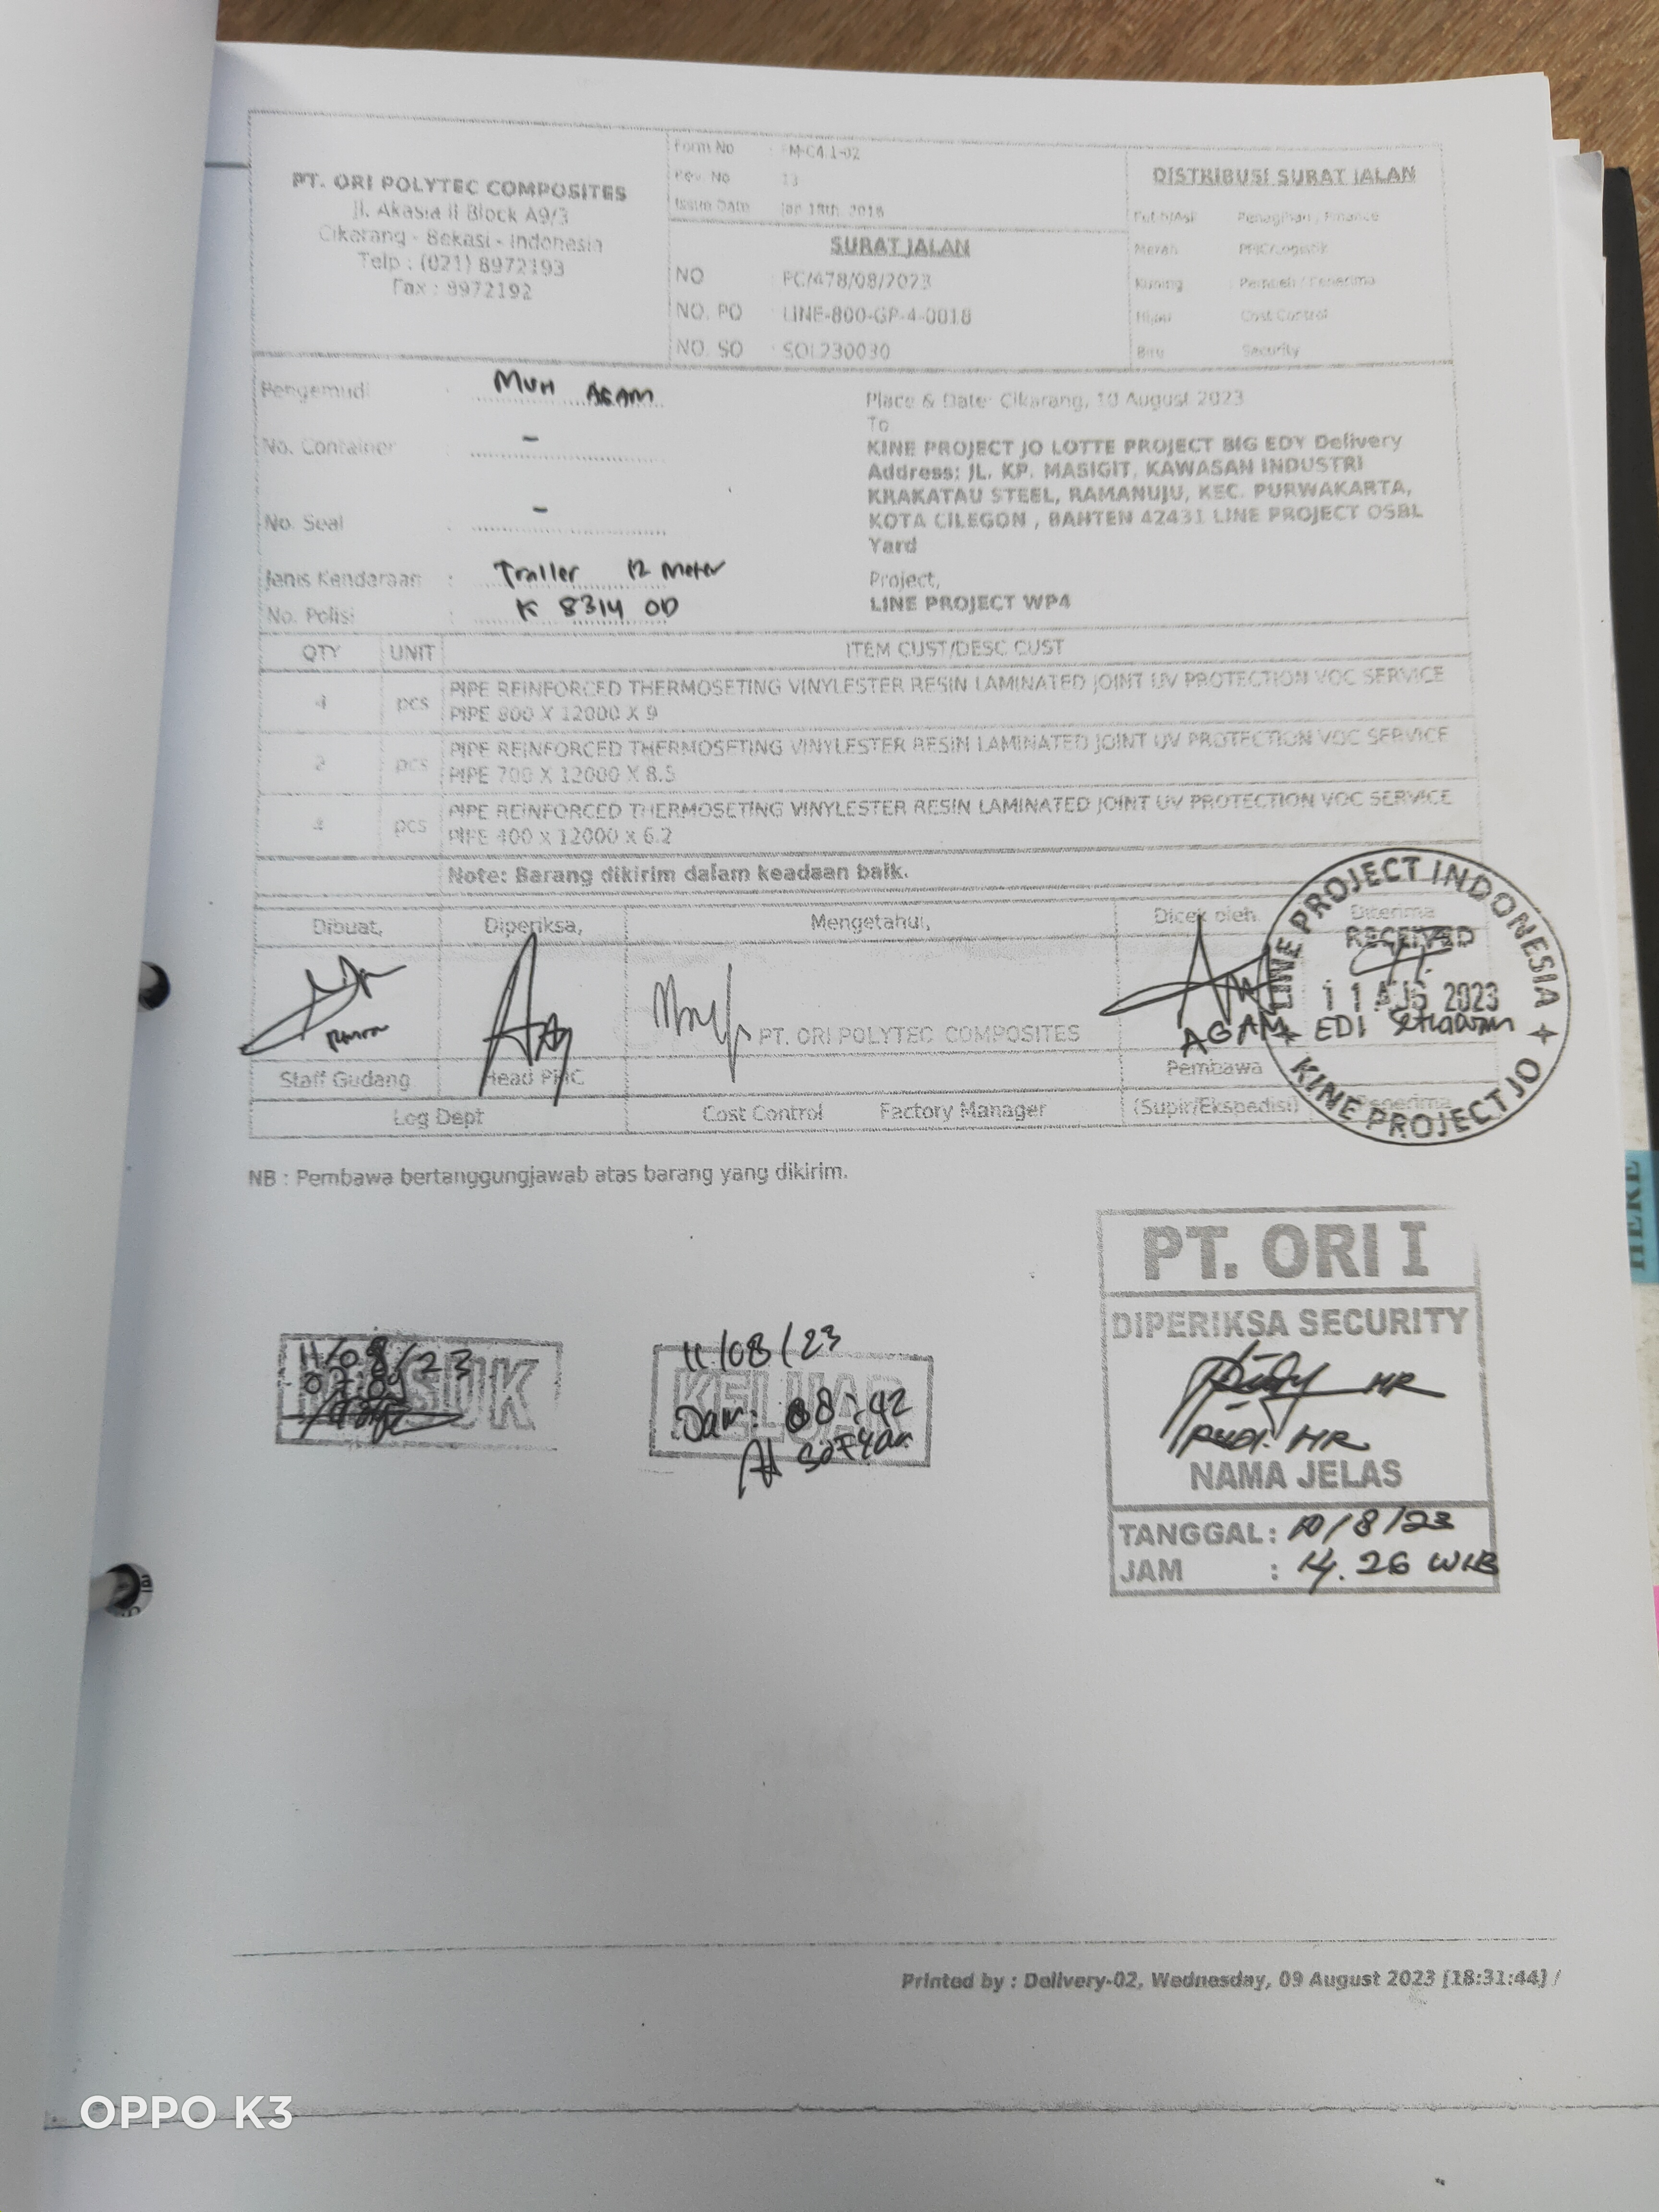 PT. ORI POLYTEC COMPOSITES
Jl. Akasia II Block A9/3
Cikarang - Bekasi - Indonesia
Telp : (021) 8972193
Fax : 8972192
Form No : FM-C4.1-02
Rev. No : 13
Issue Date : Jan 18th, 2018
SURAT JALAN
NO : PC/478/08/2023
NO. PO : LINE-800-GP-4-0018
NO. SO : SOL230030
DISTRIBUSI SURAT JALAN
Putih/Asli Penagihan / Finance
Merah PPIC/Logistik
Kuning Pembeli / Penerima
Hijau Cost Control
Biru Security
Pengemudi : MUH AGAM
No. Container : -
No. Seal : -
Jenis Kendaraan : Trailler 12 Meter
No. Polisi : K 8314 OD
Place & Date: Cikarang, 10 August 2023
To
KINE PROJECT JO LOTTE PROJECT BIG EDY Delivery
Address: JL. KP. MASIGIT, KAWASAN INDUSTRI
KRAKATAU STEEL, RAMANUJU, KEC. PURWAKARTA,
KOTA CILEGON , BANTEN 42431 LINE PROJECT OSBL
Yard
Project,
LINE PROJECT WP4
QTY UNIT ITEM CUST/DESC CUST
4 pcs PIPE REINFORCED THERMOSETING VINYLESTER RESIN LAMINATED JOINT UV PROTECTION VOC SERVICE
PIPE 800 X 12000 X 9
2 pcs PIPE REINFORCED THERMOSETING VINYLESTER RESIN LAMINATED JOINT UV PROTECTION VOC SERVICE
PIPE 700 X 12000 X 8.5
4 pcs PIPE REINFORCED THERMOSETING VINYLESTER RESIN LAMINATED JOINT UV PROTECTION VOC SERVICE
PIPE 400 x 12000 x 6.2
Note: Barang dikirim dalam keadaan baik.
Dibuat, Diperiksa, Mengetahui, Dicek oleh. Diterima
LINE PROJECT INDONESIA
RECEIVED
11 AUG 2023
KINE PROJECT JO
PT. ORI POLYTEC COMPOSITES
AGAM EDI Setiawan
Staff Gudang Head PPIC Pembawa
Log Dept Cost Control Factory Manager (Supir/Ekspedisi) Penerima
NB : Pembawa bertanggungjawab atas barang yang dikirim.
MASUK
11/08/23
KELUAR
11/08/23
Jam: 08:42
Sofyan
PT. ORI I
DIPERIKSA SECURITY
Rudi. HR
NAMA JELAS
TANGGAL : 10/8/23
JAM : 14.26 WIB
Printed by : Delivery-02, Wednesday, 09 August 2023 [18:31:44] /
HERE
OPPO K3